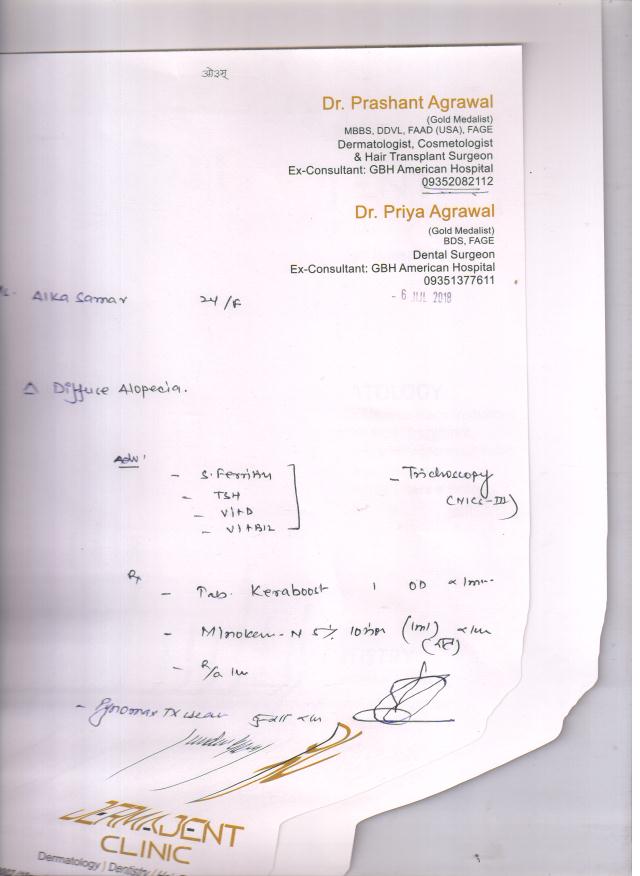 ओ३म्
Dr. Prashant Agrawal
(Gold Medalist)
MBBS, DDVL, FAAD (USA), FAGE
Dermatologist, Cosmetologist
& Hair Transplant Surgeon
Ex-Consultant: GBH American Hospital
09352082112
Dr. Priya Agrawal
(Gold Medalist)
BDS, FAGE
Dental Surgeon
Ex-Consultant: GBH American Hospital
09351377611
- 6 JUL 2018
Alka Samar 24/F
Δ Diffuse Alopecia.
Adv'
- S. Ferritin
- TSH
- Vit D
- Vit B12
- Trichoscopy
Rx
- Tab. Keraboost 1 OD x 1m
- Minokem-N 5% (1ml) x 1m
- R/a 1m
DERMADENT
CLINIC
Dermatology | Dentistry |